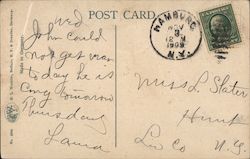 POST CARD
Wed
John could
not get over
today he is
Comg tomorrow
Thursday
Laura
HAMBURG
N.Y.
1909
Miss L. Slater
Hunt
Liv Co N.Y.